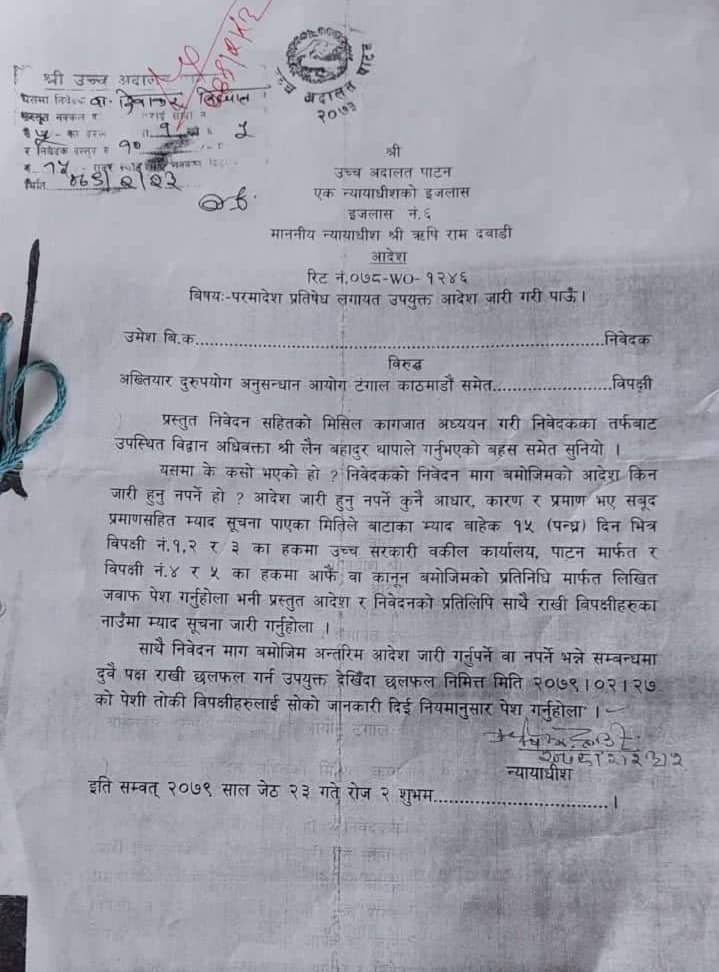 उच्च अदालत पाटन
२०७३
श्री उच्च अदालत
यसमा निवेदक
नक्कल
७९/२/२३
श्री
उच्च अदालत पाटन
एक न्यायाधीशको इजलास
इजलास नं.६
माननीय न्यायाधीश श्री ऋषि राम दवाडी
आदेश
रिट नं.०७८-WO-१२४६
बिषयः-परमादेश प्रतिषेध लगायत उपयुक्त आदेश जारी गरी पाऊँ।
उमेश बि.क.......................................................................निवेदक
विरुद्ध
अख्तियार दुरुपयोग अनुसन्धान आयोग टंगाल काठमाडौं समेत......................विपक्षी
प्रस्तुत निवेदन सहितको मिसिल कागजात अध्ययन गरी निवेदकका तर्फबाट
उपस्थित विद्वान अधिवक्ता श्री लैन बहादुर थापाले गर्नुभएको बहस समेत सुनियो ।
यसमा के कसो भएको हो ? निवेदकको निवेदन माग बमोजिमको आदेश किन
जारी हुनु नपर्ने हो ? आदेश जारी हुनु नपर्ने कुनै आधार, कारण र प्रमाण भए सबूद
प्रमाणसहित म्याद सूचना पाएका मितिले बाटाका म्याद बाहेक १५ (पन्ध्र) दिन भित्र
विपक्षी नं.१,२ र ३ का हकमा उच्च सरकारी वकील कार्यालय, पाटन मार्फत र
विपक्षी नं.४ र ५ का हकमा आफैं वा कानून बमोजिमको प्रतिनिधि मार्फत लिखित
जवाफ पेश गर्नुहोला भनी प्रस्तुत आदेश र निवेदनको प्रतिलिपि साथै राखी विपक्षीहरुका
नाउँमा म्याद सूचना जारी गर्नुहोला ।
साथै निवेदन माग बमोजिम अन्तरिम आदेश जारी गर्नुपर्ने वा नपर्ने भन्ने सम्बन्धमा
दुवै पक्ष राखी छलफल गर्न उपयुक्त देखिँदा छलफल निमित्त मिति २०७९।०२।२७
को पेशी तोकी विपक्षीहरुलाई सोको जानकारी दिई नियमानुसार पेश गर्नुहोला ।
न्यायाधीश
इति सम्वत् २०७९ साल जेठ २३ गते रोज २ शुभम..............................।